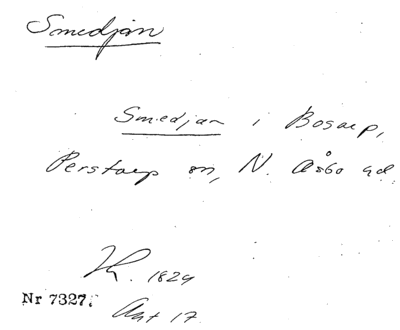 Smedjan
Smedjan i Bosarp,
Perstorp sn, N. Åsbo hd.
1824
Nr 7327.
Akt 17